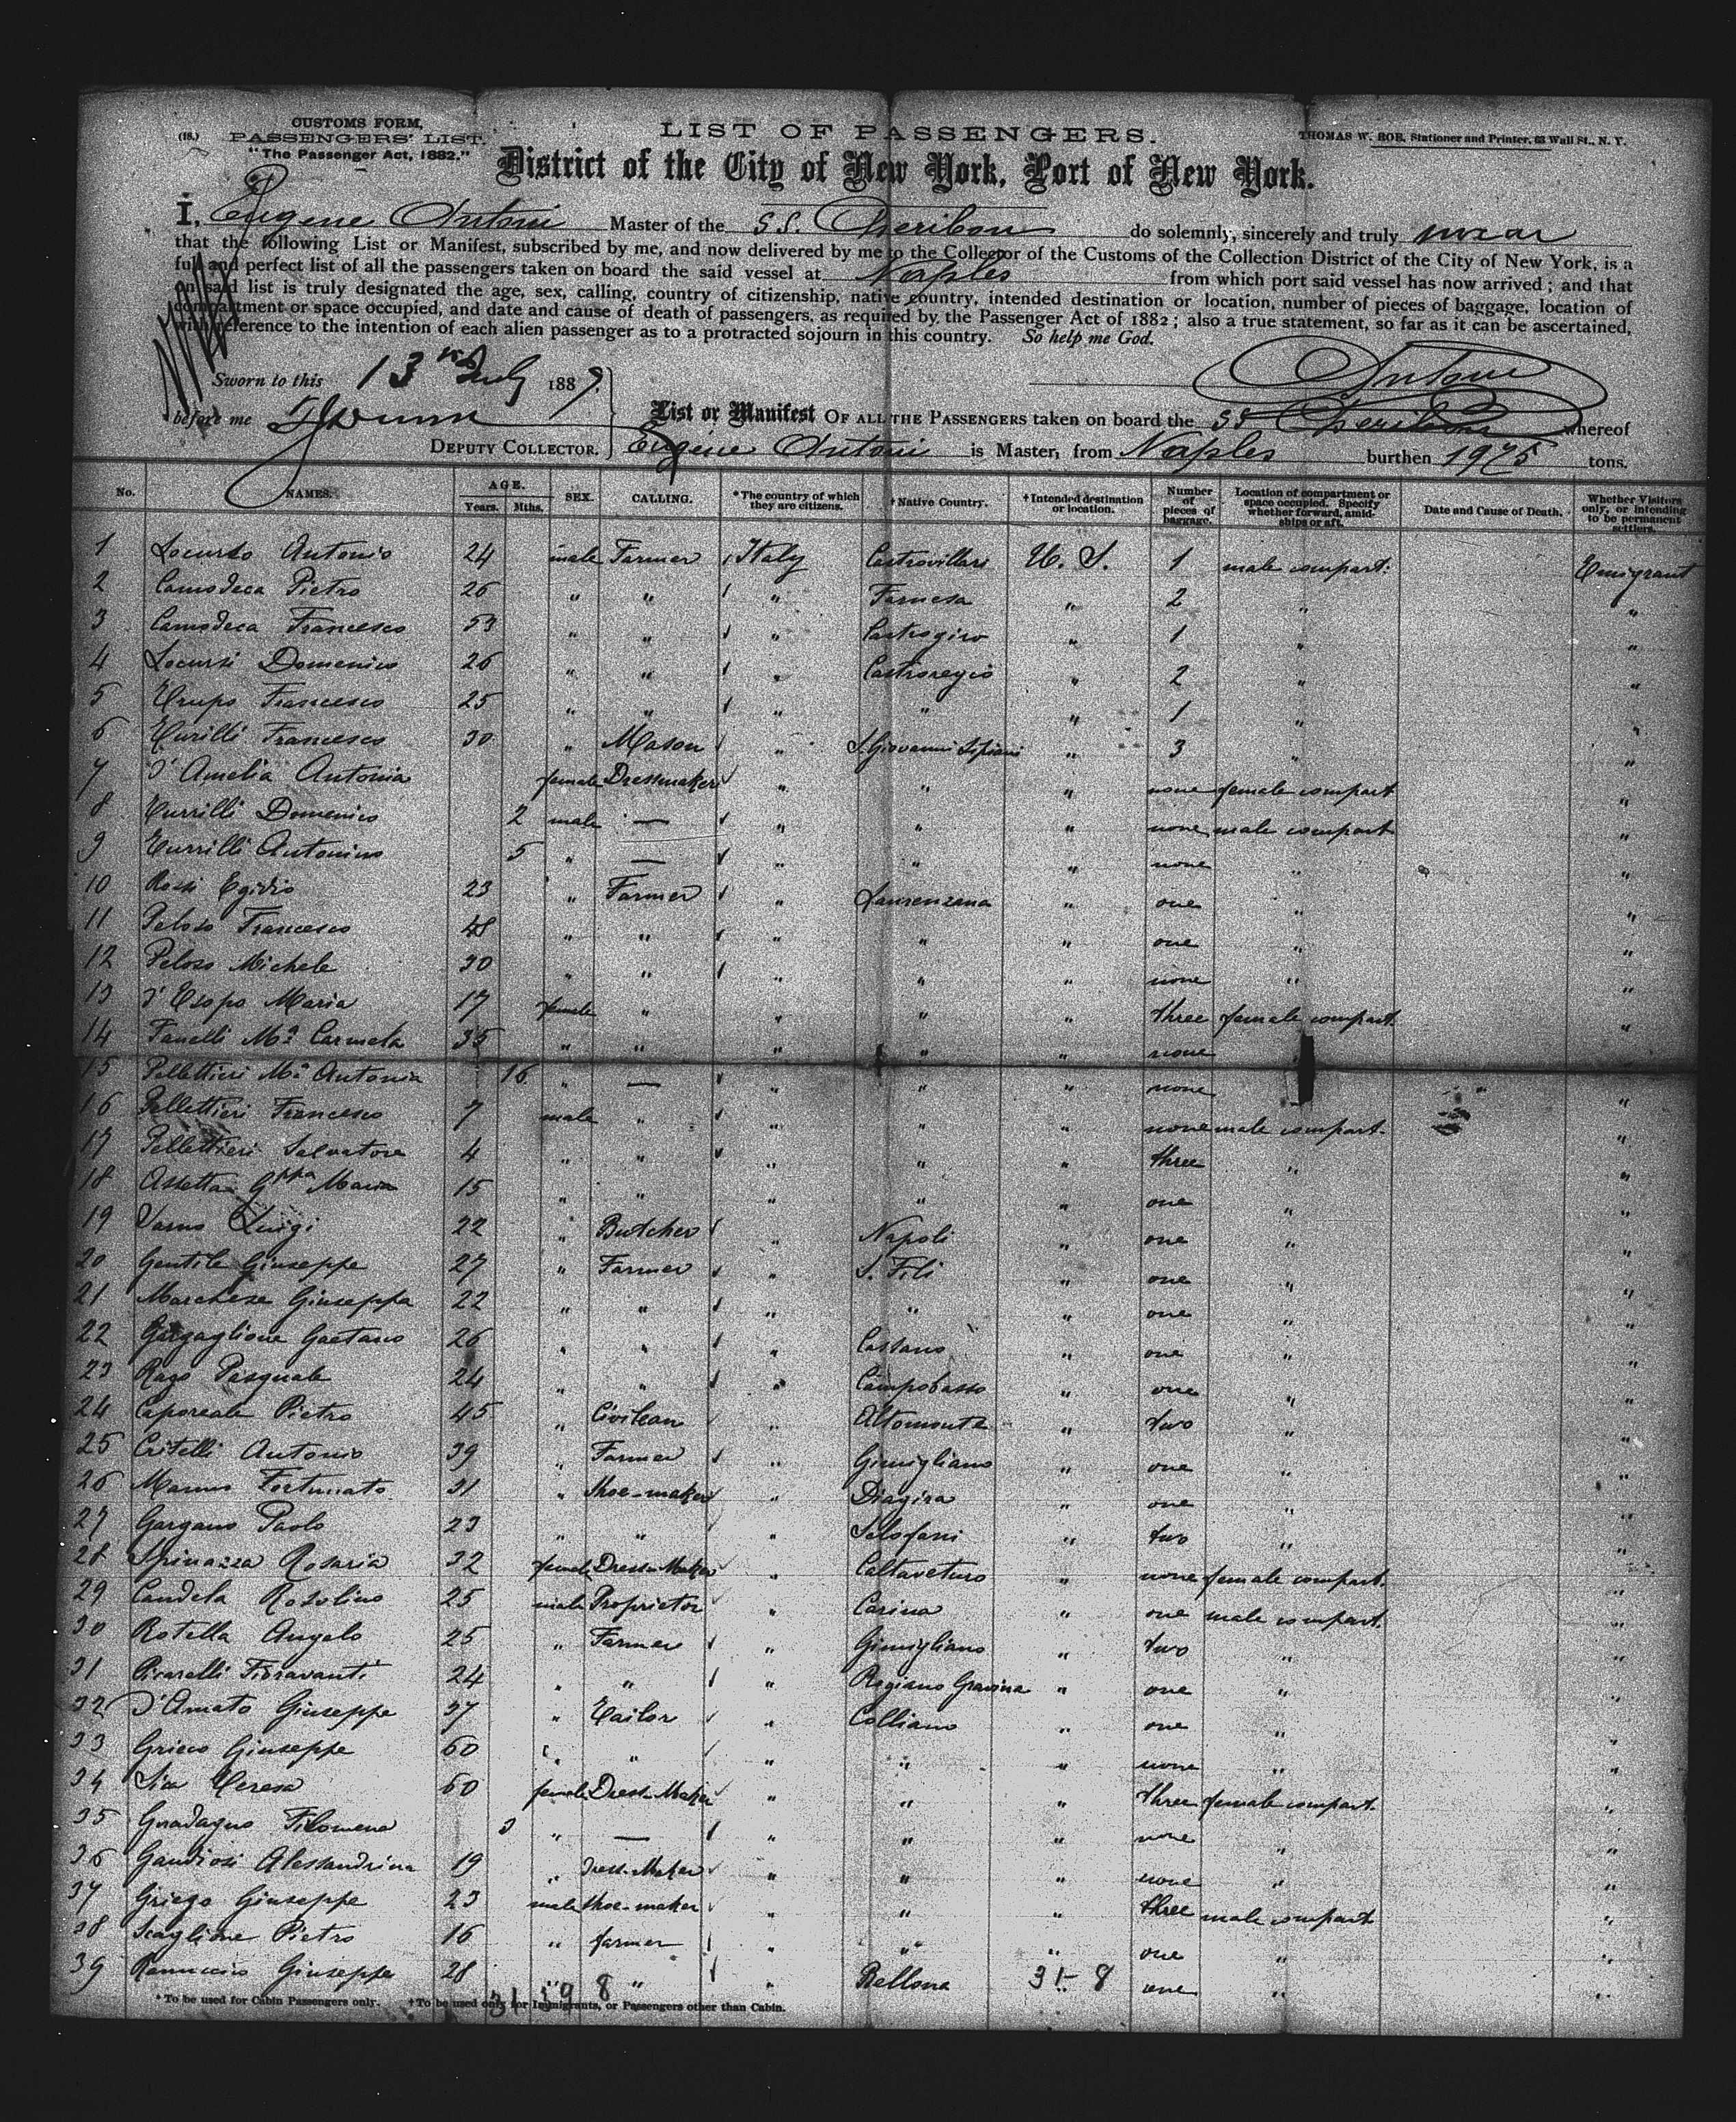 (18.)
CUSTOMS FORM.
PASSENGERS' LIST.
"The Passenger Act, 1882."
LIST OF PASSENGERS.
THOMAS W. ROE, Stationer and Printer, 63 Wall St., N. Y.
District of the City of New York, Port of New York.
I, Eugene Antoni Master of the S.S. Cheribon do solemnly, sincerely and truly swear
that the following List or Manifest, subscribed by me, and now delivered by me to the Collector of the Customs of the Collection District of the City of New York, is a
full and perfect list of all the passengers taken on board the said vessel at Naples from which port said vessel has now arrived; and that
on said list is truly designated the age, sex, calling, country of citizenship, native country, intended destination or location, number of pieces of baggage, location of
compartment or space occupied, and date and cause of death of passengers, as required by the Passenger Act of 1882; also a true statement, so far as it can be ascertained,
with reference to the intention of each alien passenger as to a protracted sojourn in this country. So help me God.
Sworn to this 13 July 1887. Antoni
before me
DEPUTY COLLECTOR.
List or Manifest OF ALL THE PASSENGERS taken on board the SS Cheribon whereof
Eugène Antoni is Master, from Naples burthen 1975 tons.
No. NAMES. AGE. Years. Mths. SEX. CALLING. *The country of which they are citizens. †Native Country. †Intended destination or location. Number of pieces of baggage. Location of compartment or space occupied. Specify whether forward, amidships or aft. Date and Cause of Death. Whether Visitors only, or intending to be permanent settlers.
1 Locurso Antonio 24 male Farmer Italy Castrovillari U. S. 1 male compart: Emigrant
2 Camodeca Pietro 26 " " " Farnesa " 2 " "
3 Camodeca Francesco 53 " " " " 1 " "
4 Locursi Domenico 26 " " " Castroregio " 2 " "
5 Trupo Francesco 25 " " " " " 1 " "
6 Turilli Francesco 30 " Mason " S. Giovanni " 3 " "
7 d'Amelia Antonia female Dressmaker " " " none female compart "
8 Turrilli Domenico 2 male — " " " none male compart "
9 Turrilli Antonino 5 " — " " " none " "
10 Rossi Egidio 23 " Farmer " Laurenzana " one " "
11 Peloso Francesco 48 " " " " " one " "
12 Peloso Michele 30 " " " " " none " "
13 d'Esopo Maria 17 female " " " " three female compart. "
14 Fanelli Ma Carmela 35 " " " " " none "
15 Pellettieri Ma Antonia 16 " — " " " none " "
16 Pellettieri Francesco 7 male " " " " none male compart. "
17 Pellettieri Salvatore 4 " " " " " three " "
18 Assetta Gppa Maria 15 " " " " " one " "
19 Varno Luigi 22 " Butcher " Napoli " one " "
20 Gentile Giuseppe 27 " Farmer " S. Fili " one " "
21 Marchese Giuseppe 22 " " " " " one " "
22 Gargaglione Gaetano 26 " " " Cassano " one " "
23 Rago Pasquale 24 " " " Campobasso " one " "
24 Caporeale Pietro 45 " Civilean " Altomonte " two " "
25 Critelli Antonio 39 " Farmer " Gimigliano " one " "
26 Marno Fortunato 31 " Shoe-maker " " one " "
27 Gargano Paolo 23 " " " " two " "
28 Spinazza Rosaria 32 female Dress-Maker " Caltavuturo " none female compart. "
29 Candela Rosolino 25 male Proprietor " Carina " one male compart. "
30 Rotella Angelo 25 " Farmer " Gimigliano " two " "
31 Picarelli Fioravanti 24 " " " Rogiano Gravina " one " "
32 D'Amato Giuseppe 37 " Tailor " Colliano " one " "
33 Grieco Giuseppe 60 " " " " " none " "
34 Teresa 60 female Dress-Maker " " " three female compart. "
35 Guadagno Filomena 3 " — " " " none " "
36 Gaudiosi Alessandrina 19 " Dress-Maker " " " none " "
37 Griego Giuseppe 23 male Shoe-maker " " " three male compart "
38 Scaglione Pietro 16 " farmer " " " one " "
39 Ranuccio Giuseppe 28 " " " Bellona 31- 8 one " "
*To be used for Cabin Passengers only. †To be used only for Immigrants, or Passengers other than Cabin.